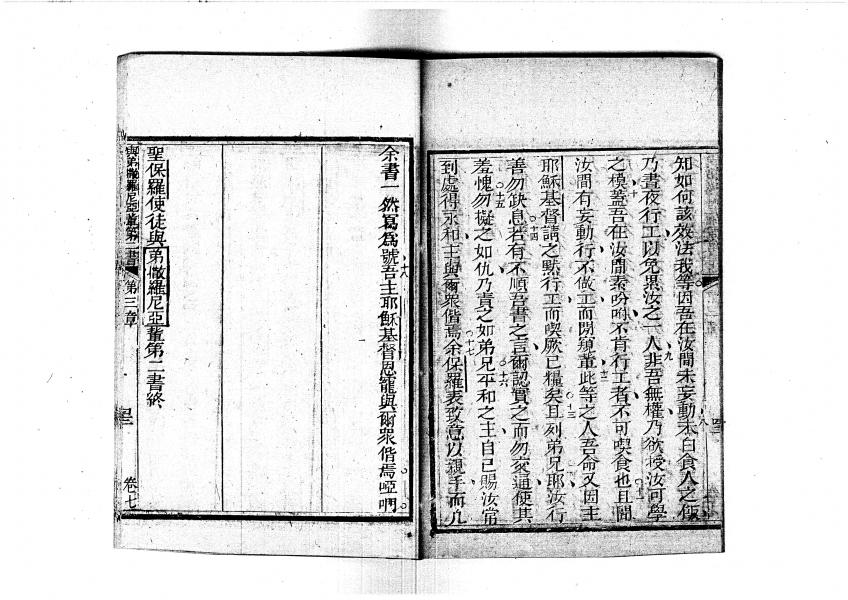 知如何該效法我等因吾在汝間未妄動本白食人之飯
乃晝夜行工以免累汝之一人非吾無權乃欲授汝可學
之模蓋吾在汝間素吩咐不肯行工者不可喫食也且聞
汝間有妄動行不做工而閒遊輩此等之人吾命又因主
耶穌基督請之默行工而喫厥已糧矣且列弟兄耶汝行
善勿缺息若有不順吾書之言爾認實之而勿交通使其
羞愧勿擬之如仇乃責之如弟兄平和之主自己賜汝常
到處得永和主與爾眾偕焉余保羅表致意以親手而凡
余書一然寫為號吾主耶穌基督恩寵與爾眾偕焉啞唎
聖保羅使徒與弟撒羅尼亞輩第二書終
與弟撒羅尼亞輩第二書 第三章 卷七